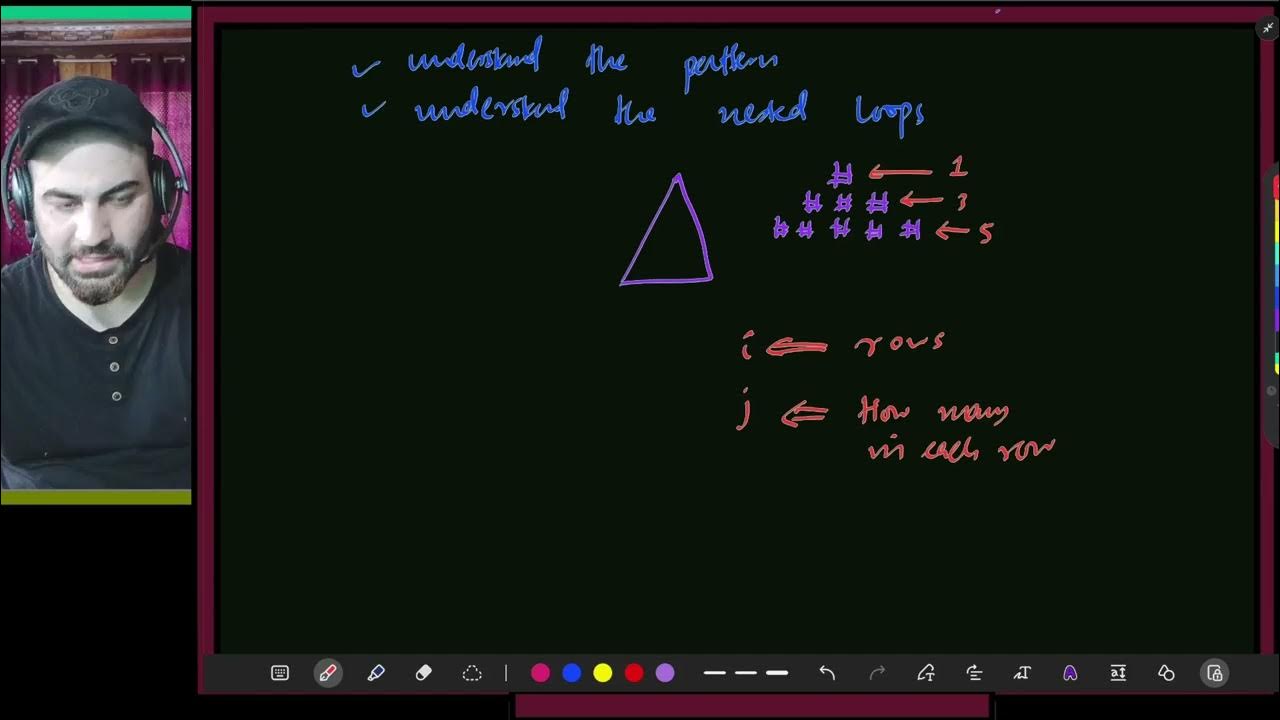 ✓ understand the pattern
✓ understand the nested loops
# ← 1
# # # ← 3
# # # # # ← 5
i ⇐ rows
j ⇐ How many
in each row